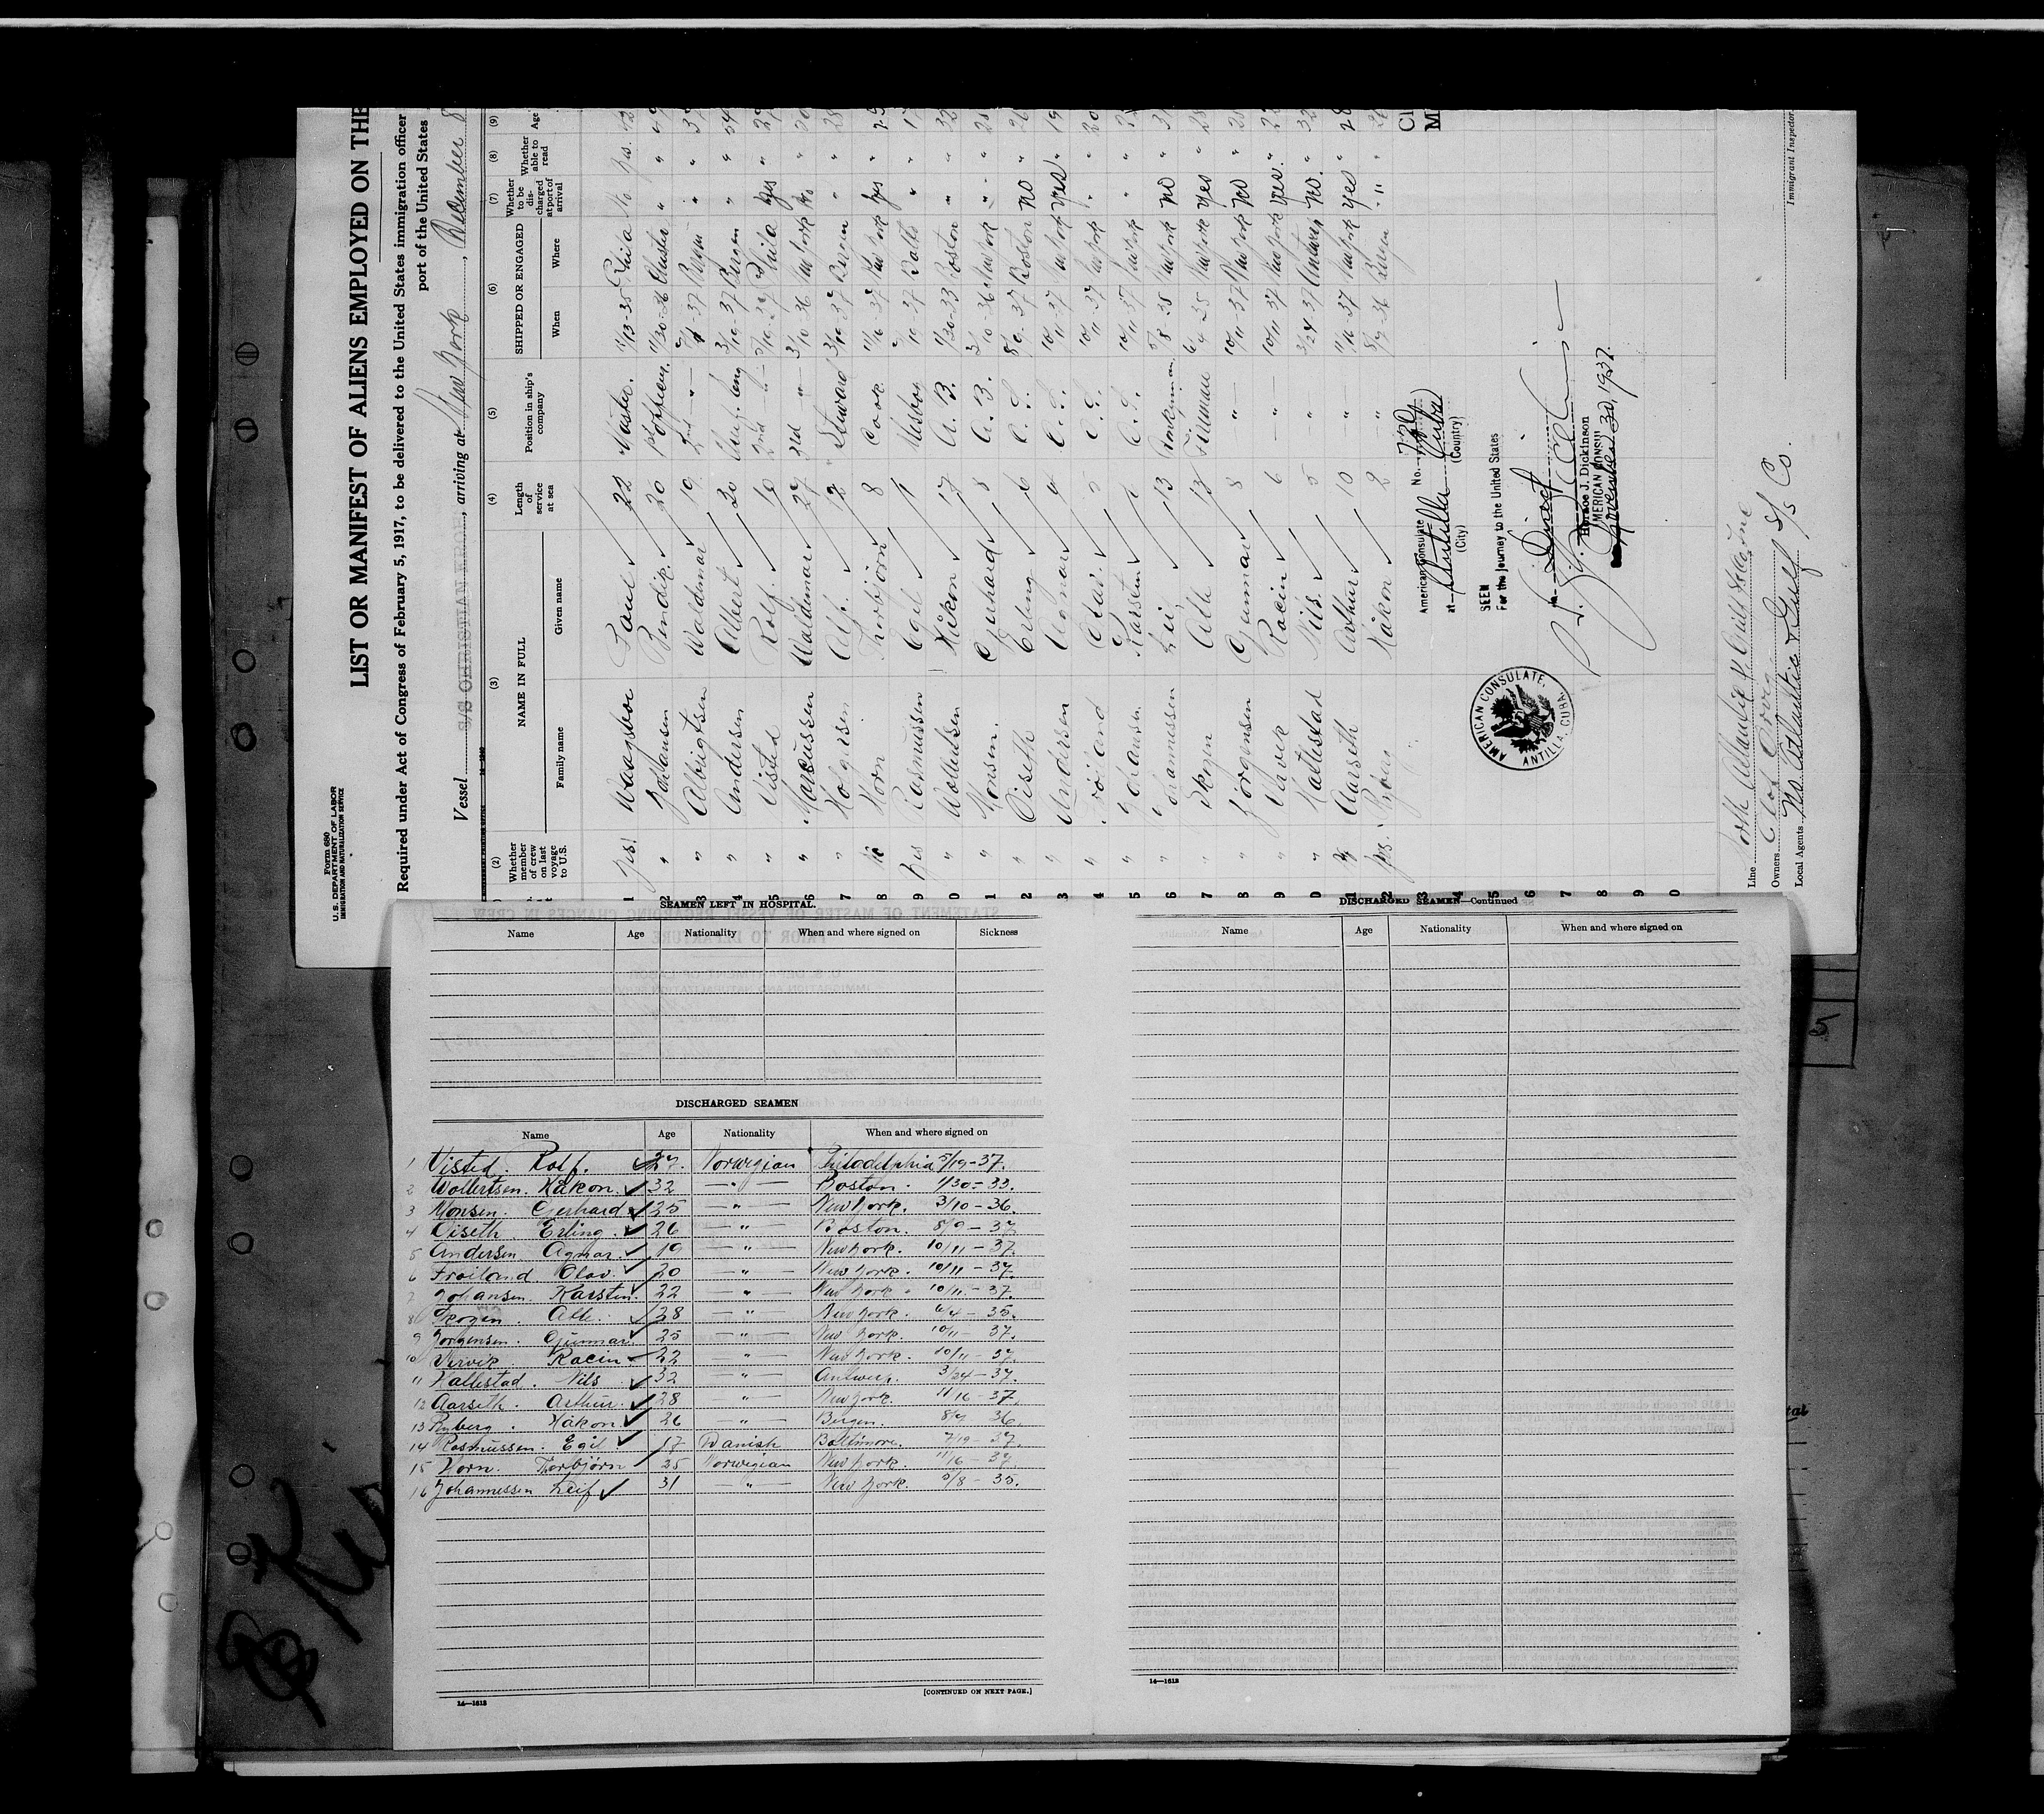 Form 680
U. S. DEPARTMENT OF LABOR
IMMIGRATION AND NATURALIZATION SERVICE
LIST OR MANIFEST OF ALIENS EMPLOYED ON THE
Required under Act of Congress of February 5, 1917, to be delivered to the United States immigration officer
port of the United States
Vessel S/S CHRISTIAN KROHG, arriving at New York, December 8
(2) (3) (4) (5) (6) (7) (8) (9)
Whether member of crew on last voyage to U.S. NAME IN FULL Length of service at sea Position in ship's company SHIPPED OR ENGAGED Whether to be discharged at port of arrival Whether able to read Age
Family name Given name When Where
1 yes Paul 22 Master. Phila No yes.
2 " Johansen Bendik. 20 11/30-36 " "
3 " Albrigtsen Waldemar 19 2nd " Bergen " "
4 " Andersen Albert 30 3/19-37 Bergen " "
5 " Visted Rolf. 10 2nd 5/19-37 Phila yes "
6 " Marcussen Waldemar 27 3rd " 3/10-36 New York No "
7 " Holgersen Alf. 12 Steward 3/19-37 Bergen " "
8 No Horn Thorbjörn 8 Cook 11/16-37 New York yes " 25
9 yes Rasmussen Egil 1 Messboy 7/19-37 Balto " " 17
0 " Wollertsen Håkon 17 A. B. 1/30-33 Boston " " 32
1 " Monsen. Gerhard 8 A. B. 3/10-36 New York " " 25
2 " Oiseth Erling 6 O. S. 8/9-37 Boston no " 26
3 " Andersen Agmar 4 O. S. 10/11-37 New York yes " 19
4 " Froiland Olav. 5 O. S. 10/11-37 New York " " 20
5 " Johansen Karsten O. S. 10/11-37 New York " " 22
6 " Johannessen Leif 13 5/8-35 New York no " 31
7 " Skogen Atle 13 Fireman 6/4-35 New York yes " 28
8 " Jörgensen Gunnar 8 " 10/11-37 New York yes " 25
9 " Nervik Racin 6 " 10/11-37 New York yes. " 22
0 " Hallestad Nils. 5 " 3/24-37 Antwerp no. " 32
1 Aarseth Arthur 10 " 11/16-37 New York yes " 28
2 yes. Ryberg Håkon 2 " 8/7-36 Bergen " " 26
3
4
5
6
7
8
9
0
American Consulate No. 720
at Antilla Cuba
(City) (Country)
SEEN
For the journey to the United States
Direct
Horace J. Dickinson
AMERICAN CONSUL
November 30, 1937.
AMERICAN CONSULATE,
ANTILLA, CUBA
Line North Atlantic & Gulf Line
Owners
Local Agents No. Atlantic & Gulf S/S Co.
Immigrant Inspector.
SEAMEN LEFT IN HOSPITAL.
Name Age Nationality When and where signed on Sickness
DISCHARGED SEAMEN
Name Age Nationality When and where signed on
1 Visted. Rolf. 27. Norwegian Philadelphia 5/19-37.
2 Wollertsen. Håkon. 32 —"— Boston. 1/30-33.
3 Monsen. Gerhard 25 —"— New York. 3/10-36.
4 Oiseth Erling. 26 —"— Boston. 8/9-37
5 Andersen Agmar. 19 —"— New York. 10/11-37.
6 Froiland Olav. 20 —"— New York. 10/11-37.
7 Johansen. Karsten. 22 —"— New York. 10/11-37.
8 Skogen. Atle. 28 —"— New York. 6/4-35.
9 Jorgensen. Gunnar. 25 —"— New York. 10/11-37.
10 Nervik Racin 22 —"— New York. 10/11-37.
11 Hallestad. Nils 32 —"— Antwerp. 3/24-37.
12 Aarseth. Arthur. 28 —"— New York. 11/16-37.
13 Ryberg. Håkon. 26 —"— Bergen. 8/7 36.
14 Rasmussen. Egil 17 Danish Baltimore. 7/19-37.
15 Horn. Thorbjørn 25 Norwegian New York. 11/16-37.
16 Johannessen Leif 31 —"— New York. 5/8-35.
14—1613
[CONTINUED ON NEXT PAGE.]
DISCHARGED SEAMEN—Continued
Name Age Nationality When and where signed on
14—1613